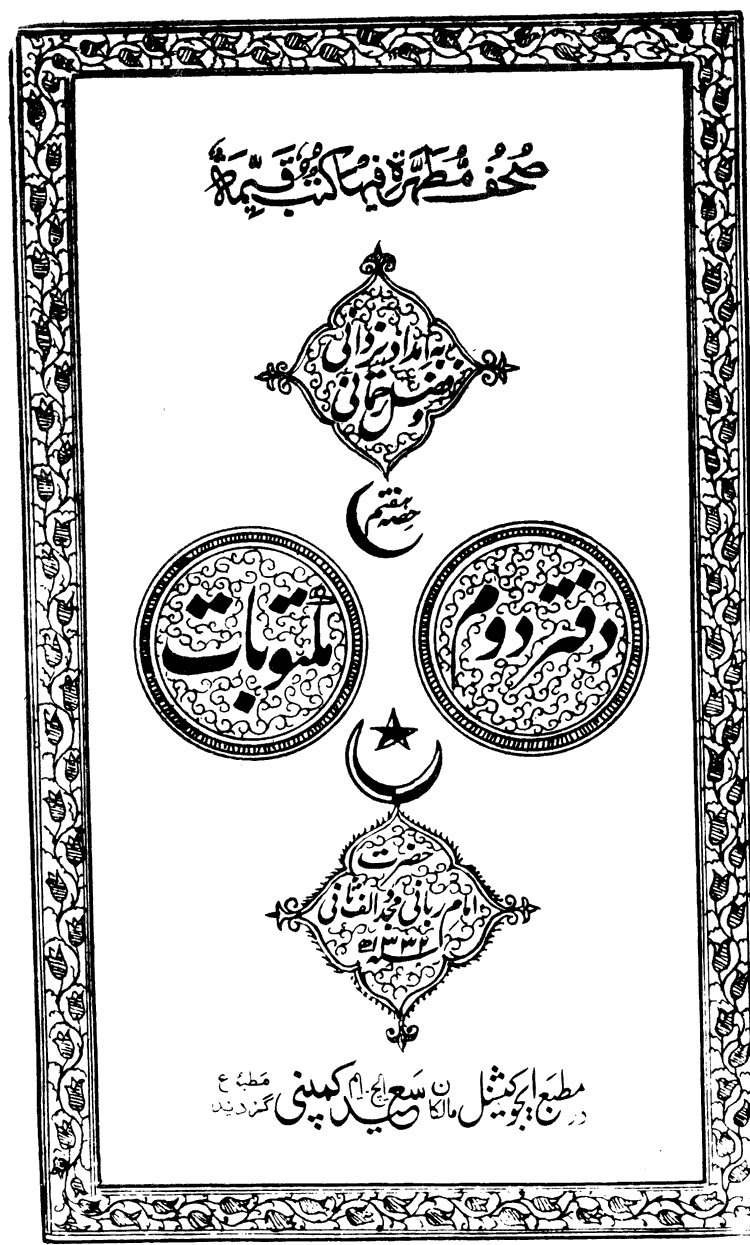 صُحُفٌ مُّطَهَّرَةً فِيهَا كُتُبٌ قَيِّمَةٌ
به امداد یزدانی
و فضل رحمانی
حصہ هفتم
دفتر دوم
مکتوبات
حضرت
امام ربانی مجدد الف ثانی
۱۳۳۲ھ
در مطبع ایجوکیشنل مالکان ایچ۔ ایم سعید کمپنی مطبوع گردید